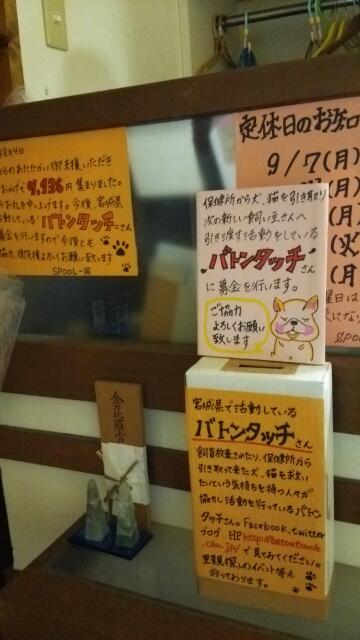 8月4日
らのあたたかい御支援いただき
おかげで 4,936円 集まりました。
うお礼を申し上げます。今後、宮城県
動している バトンタッチさん
募金を行いますので今後とも
協力、御支援よろしくお願い致します
SPOOL一同
定休日のお知
9/7(月)
(月)
(月)
(火)
(月)
曜日は
保健所から犬、猫を引き取り
次の新しい飼い主さんへ
引き渡す活動をしている
バトンタッチさん
に募金を行います。
ご協力
よろしくお願い
致します
金刀比羅宮
宮城県で活動している
バトンタッチさん
飼育放棄されたり、保健所から
引き取って来た犬、猫を救い
たいという気持ちを持つ人々が
協力し活動を行っているバトン
タッチさん。Facebook、twitter
ブログ HP http://batontouch
.chu.jp/ で見てみてください。
里親探しのイベント等も
行っております。